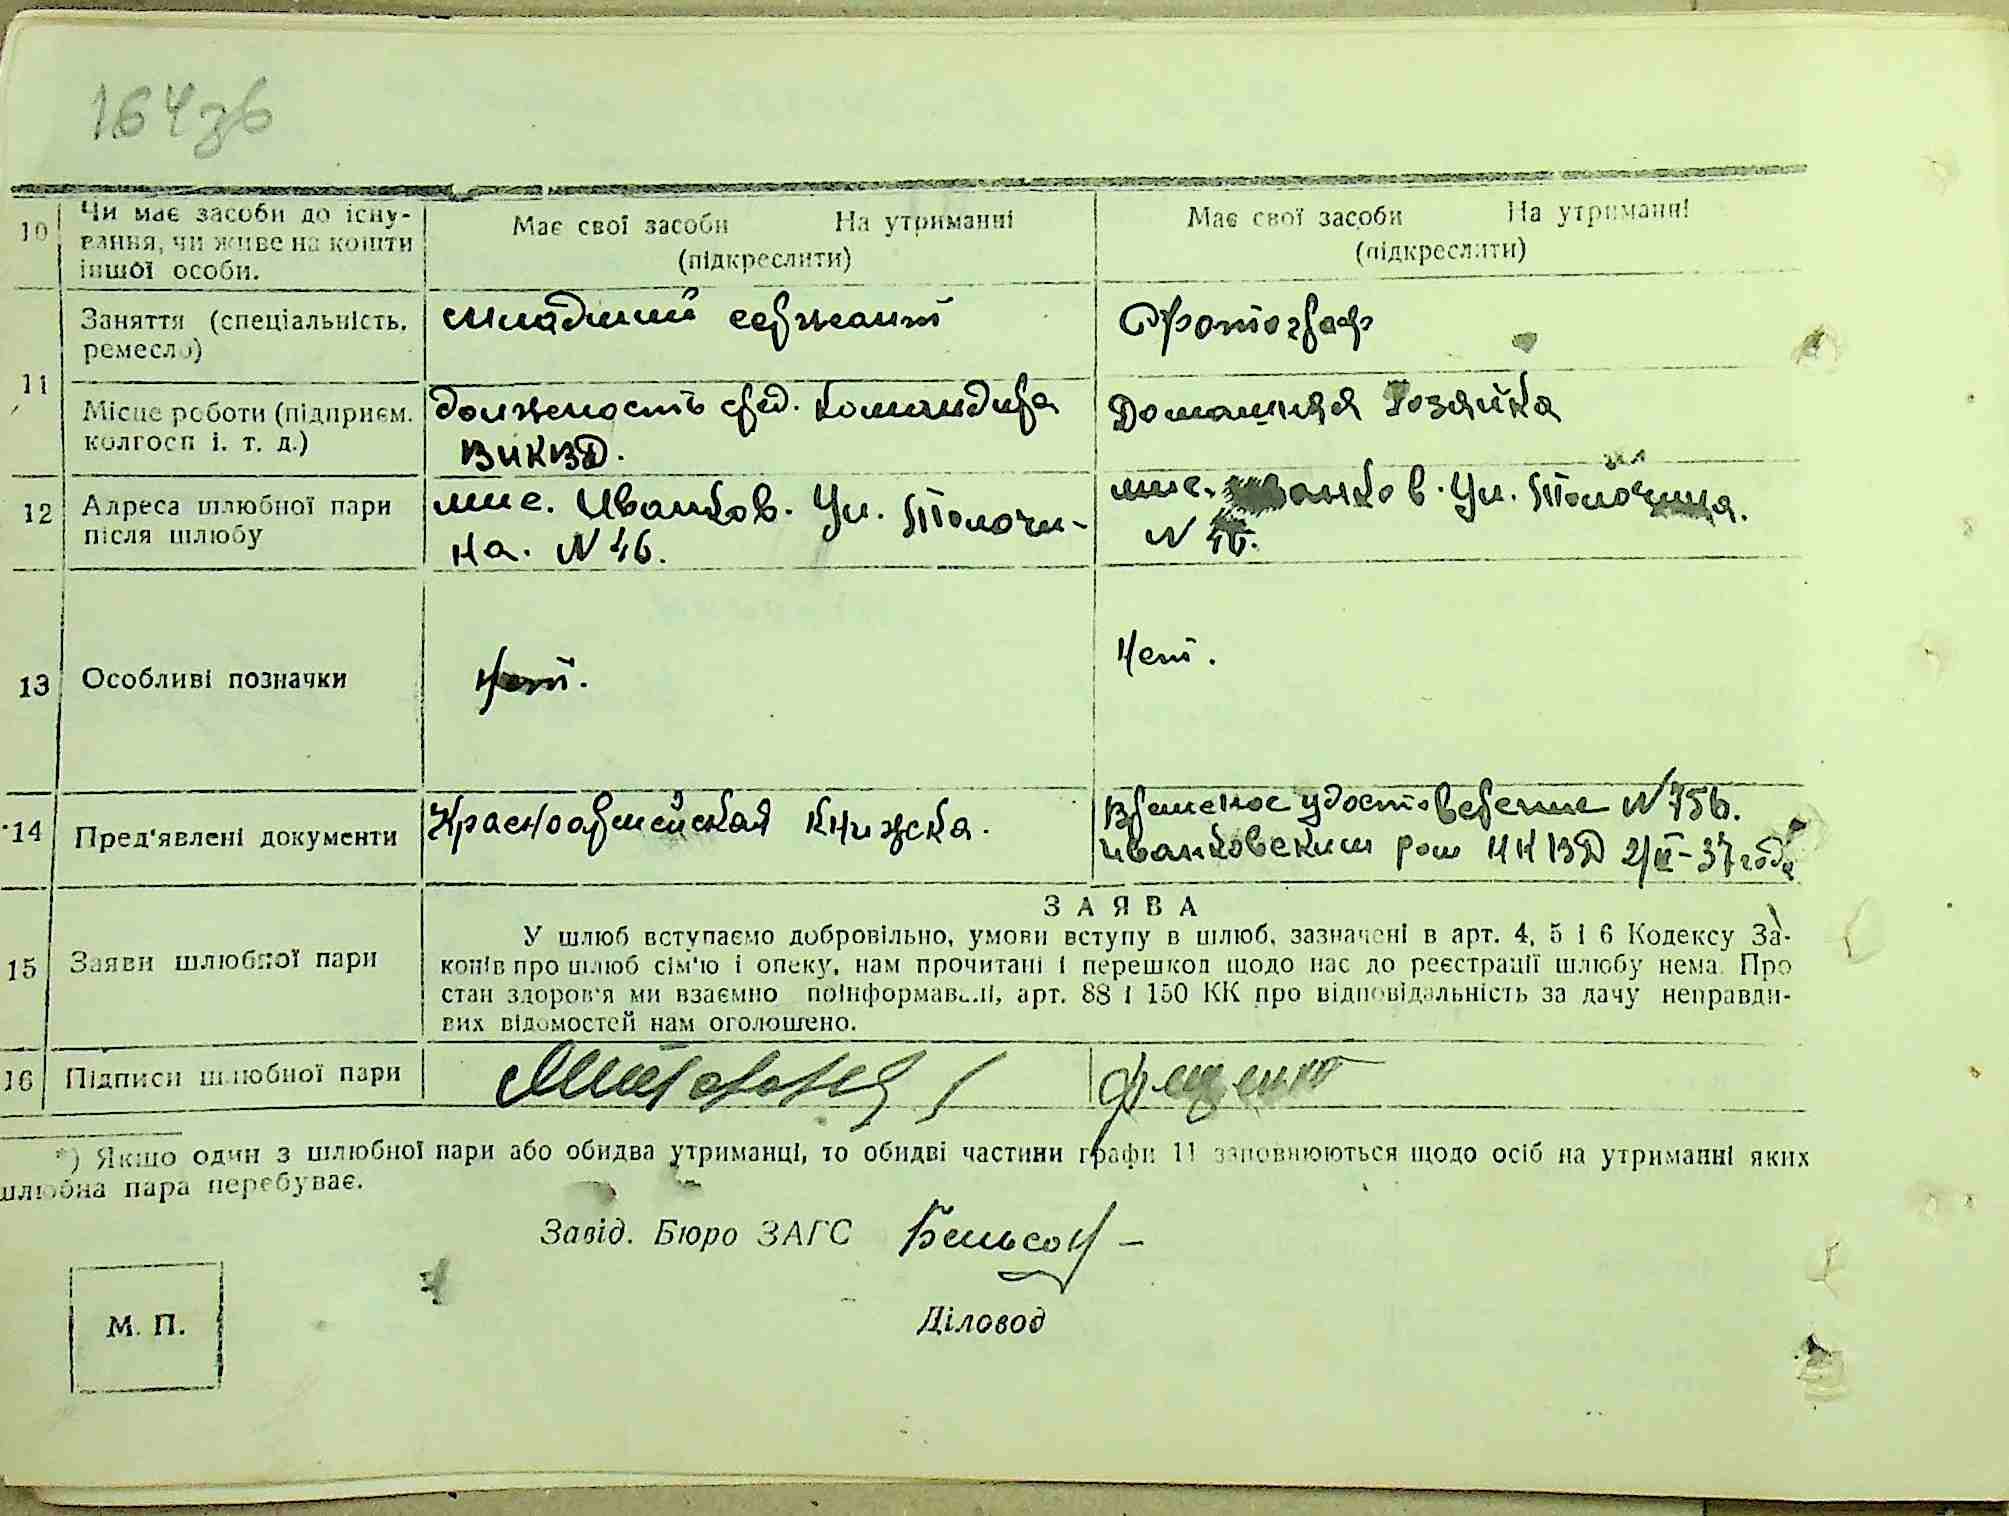 164зв
10 Чи має засоби до існу- Має свої засоби На утриманні Має свої засоби На утриманні
вання, чи живе на кошти (підкреслити) (підкреслити)
іншої особи.
11 Заняття (спеціальність, младший сержант Фотограф
ремесло)
Місце роботи (підприєм. должность сред. командира Домашняя Хозяйка
колгосп і. т. д.)
12 Адреса шлюбної пари мис. Иванков. Ул. Толочи- мис. Иванков. Ул. Толочина.
після шлюбу на. N 46. N 46.
13 Особливі позначки Нет. Нет.
14 Пред'явлені документи Красноармейская книжска. Временое удостоверение N 756.
Иванковским НКВД 37 года
З А Я В А
15 Заяви шлюбної пари У шлюб вступаємо добровільно, умови вступу в шлюб, зазначені в арт. 4, 5 і 6 Кодексу За-
конів про шлюб сім'ю і опеку, нам прочитані і перешкод щодо нас до реєстрації шлюбу нема. Про
стан здоров'я ми взаємно поінформавалі, арт. 88 і 150 КК про відповідальність за дачу неправди-
вих відомостей нам оголошено.
16 Підписи шлюбної пари
*) Якщо один з шлюбної пари або обидва утриманці, то обидві частини графи 11 заповнюються щодо осіб на утриманні яких
шлюбна пара перебуває.
Завід. Бюро ЗАГС
Діловод
М. П.